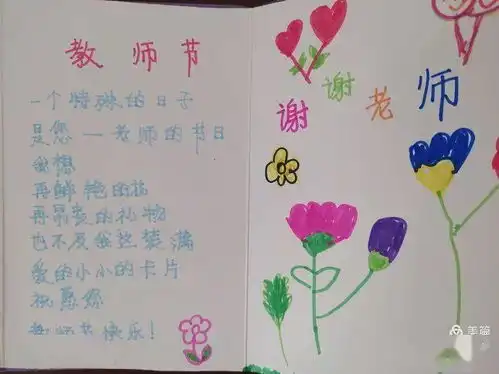 教师节
一个特殊的日子
是您一老师的节日
我想
再鲜艳的花
再昂贵的礼物
也不及我这装满
爱的小小的卡片
祝愿您
教师节快乐!
谢谢老师
美篇